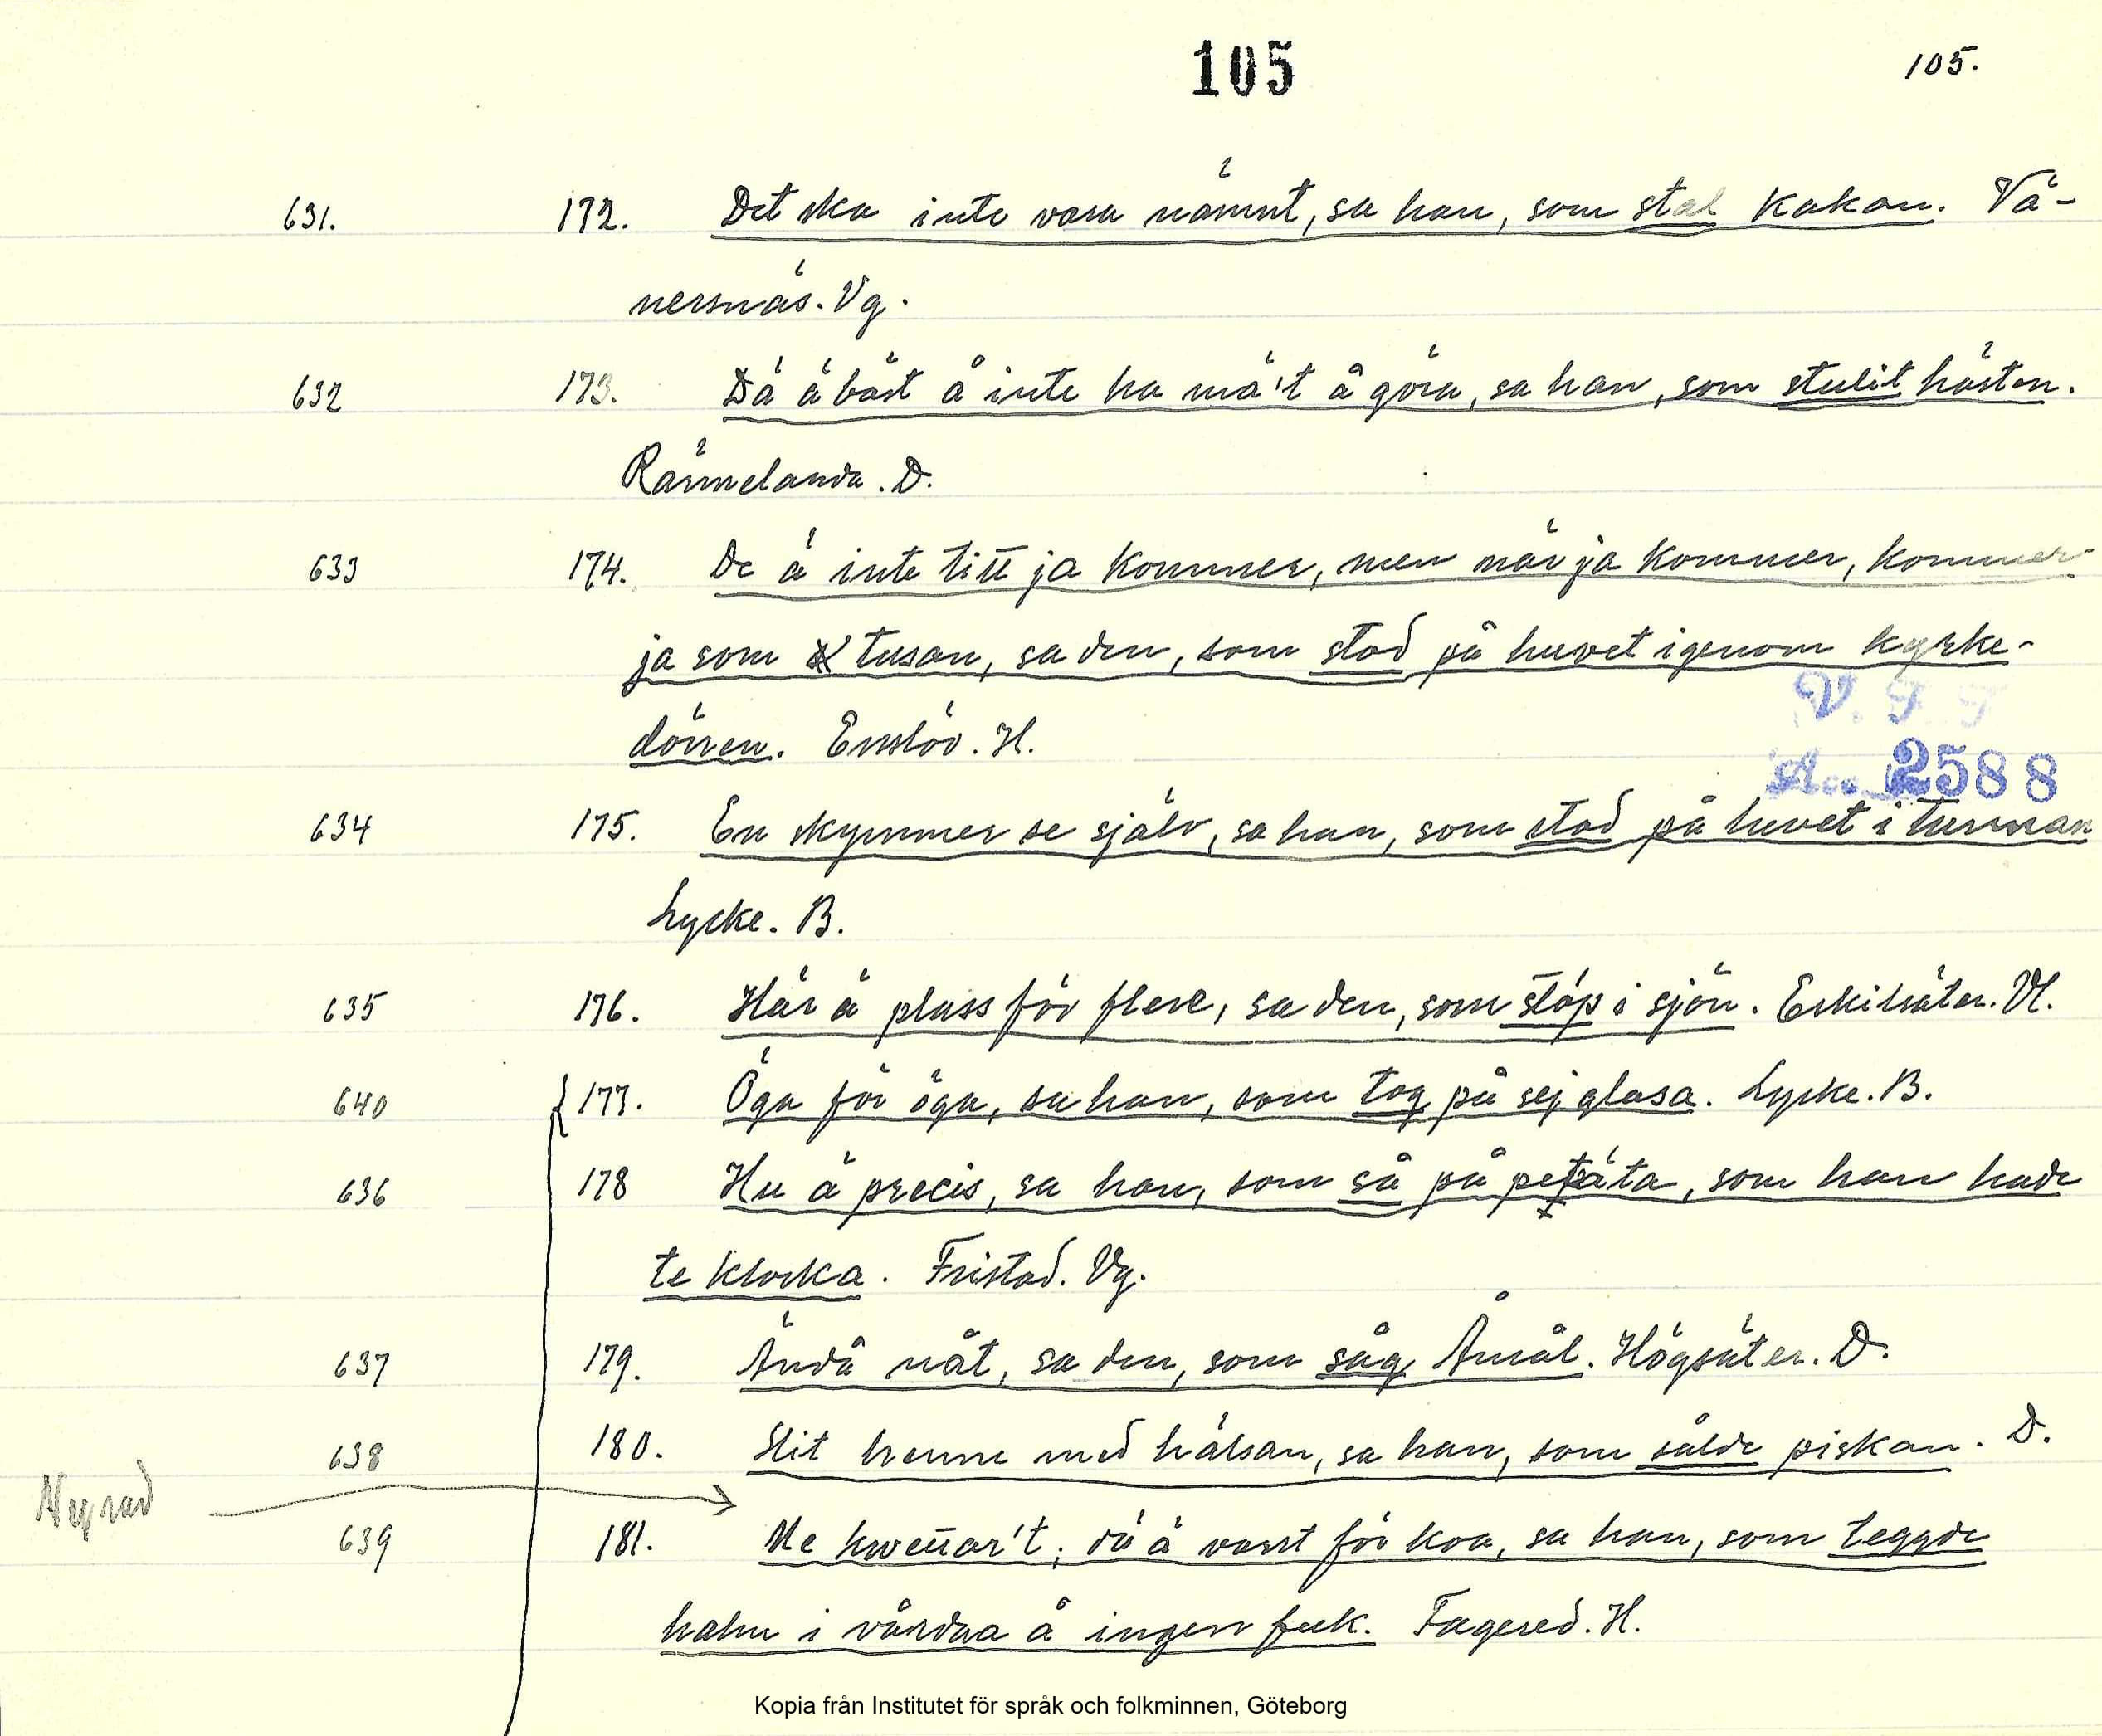 105
105.
631. 172. Det ska inte vara nämnt, sa han, som stal kakan. Vä-
nersnäs. Vg.
632 173. Dä ä bäst å inte ha mä't å göra, sa han, som stulit hästen.
Rännelanda. D.
633 174. De ä inte titt ja kommer, men när ja kommer, kommer
ja som tusan, sa den, som stod på huvet igenom kyrke-
dörren. Enslöv. H.
V. F. F
Acc. 2588
634 175. En skymmer se själv, sa han, som stod på huvet i tunnan
Lycke. B.
635 176. Här ä plass för flere, sa den, som stöp i sjön. Eskilsäter. Vl.
640 177. Öga för öga, sa han, som tog på sej glasa. Lycke. B.
636 178 Hu ä precis, sa han, som så på petäta, som han hade
te klocka. Fristad. Vg.
637 179. Ändå nåt, sa den, som såg Åmål. Högsäter. D.
638 180. Slit henne med hälsan, sa han, som sålde piskan. D.
Ny rad
639 181. Me kwettar't; dä ä varst för koa, sa han, som leggde
halm i vårdna å ingen fick. Fagered. H.
Kopia från Institutet för språk och folkminnen, Göteborg